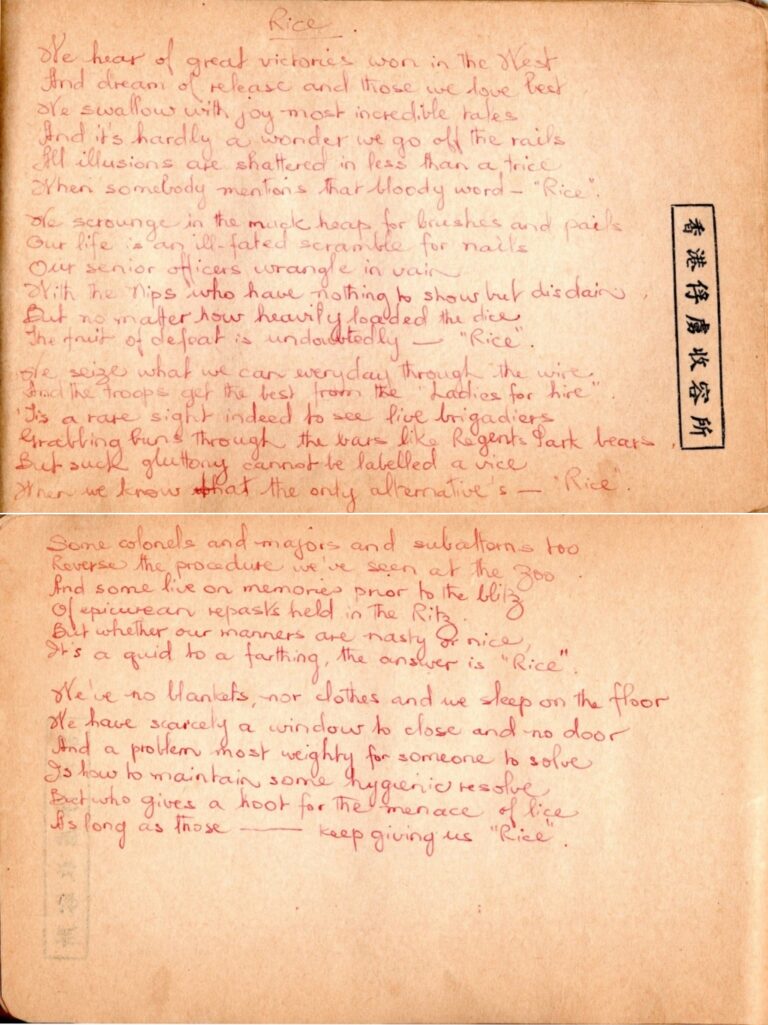 Rice.
We hear of great victories won in the West
And dream of release and those we love best
We swallow with joy most incredible tales
And it's hardly a wonder we go off the rails
All illusions are shattered in less than a trice
When somebody mentions that bloody word - "Rice".
We scrounge in the muck heap for brushes and pails
Our life is an ill-fated scramble for nails
Our senior officers wrangle in vain
With the Nips who have nothing to show but disdain.
But no matter how heavily loaded the dice
The fruit of defeat is undoubtedly — "Rice".
We seize what we can everyday through the wire
And the troops get the best from the "Ladies for hire"
'Tis a rare sight indeed to see five brigadiers
Grabbing buns through the bars like Regents Park bears.
But such gluttony cannot be labelled a vice
When we know that the only alternative's — "Rice".
香港俘虜收容所
Some colonels and majors and subalterns too
Reverse the procedure we've seen at the Zoo
And some live on memories prior to the blitz
Of epicurean repasts held in the Ritz.
But whether our manners are nasty or nice,
It's a quid to a farthing, the answer is "Rice".
We've no blankets, nor clothes and we sleep on the floor
We have scarcely a window to close and no door
And a problem most weighty for someone to solve
Is how to maintain some hygienic resolve
But who gives a hoot for the menace of lice
As long as those —— keep giving us "Rice".